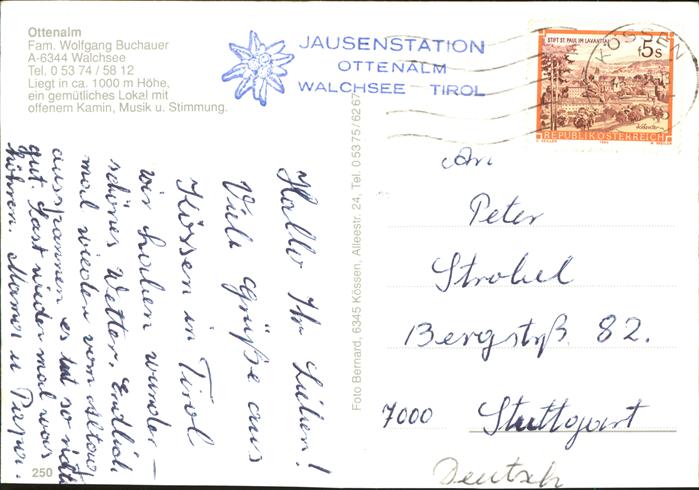 Ottenalm
Fam. Wolfgang Buchauer
A-6344 Walchsee
Tel. 0 53 74 / 58 12
Liegt in ca. 1000 m Höhe,
ein gemütliches Lokal mit
offenem Kamin, Musik u. Stimmung.
JAUSENSTATION
OTTENALM
WALCHSEE - TIROL
STIFT ST. PAUL IM LAVANTTAL
5 s
REPUBLIK ÖSTERREICH
KÖSSEN
Hallo Ihr Lieben!
Viele Grüße aus
Kössen in Tirol
wir haben wunder-
schönes Wetter. Endlich
mal wieder vom Alltag
ausspannen es tut so richtig
gut. Last wieder mal was
hören. Mama u Papa.
Foto Bernard, 6345 Kössen, Alleestr. 24, Tel. 0 53 75 / 62 67
An
Peter
Strobel
Bergstrß. 82.
7000 Stuttgart
Deutsch
250